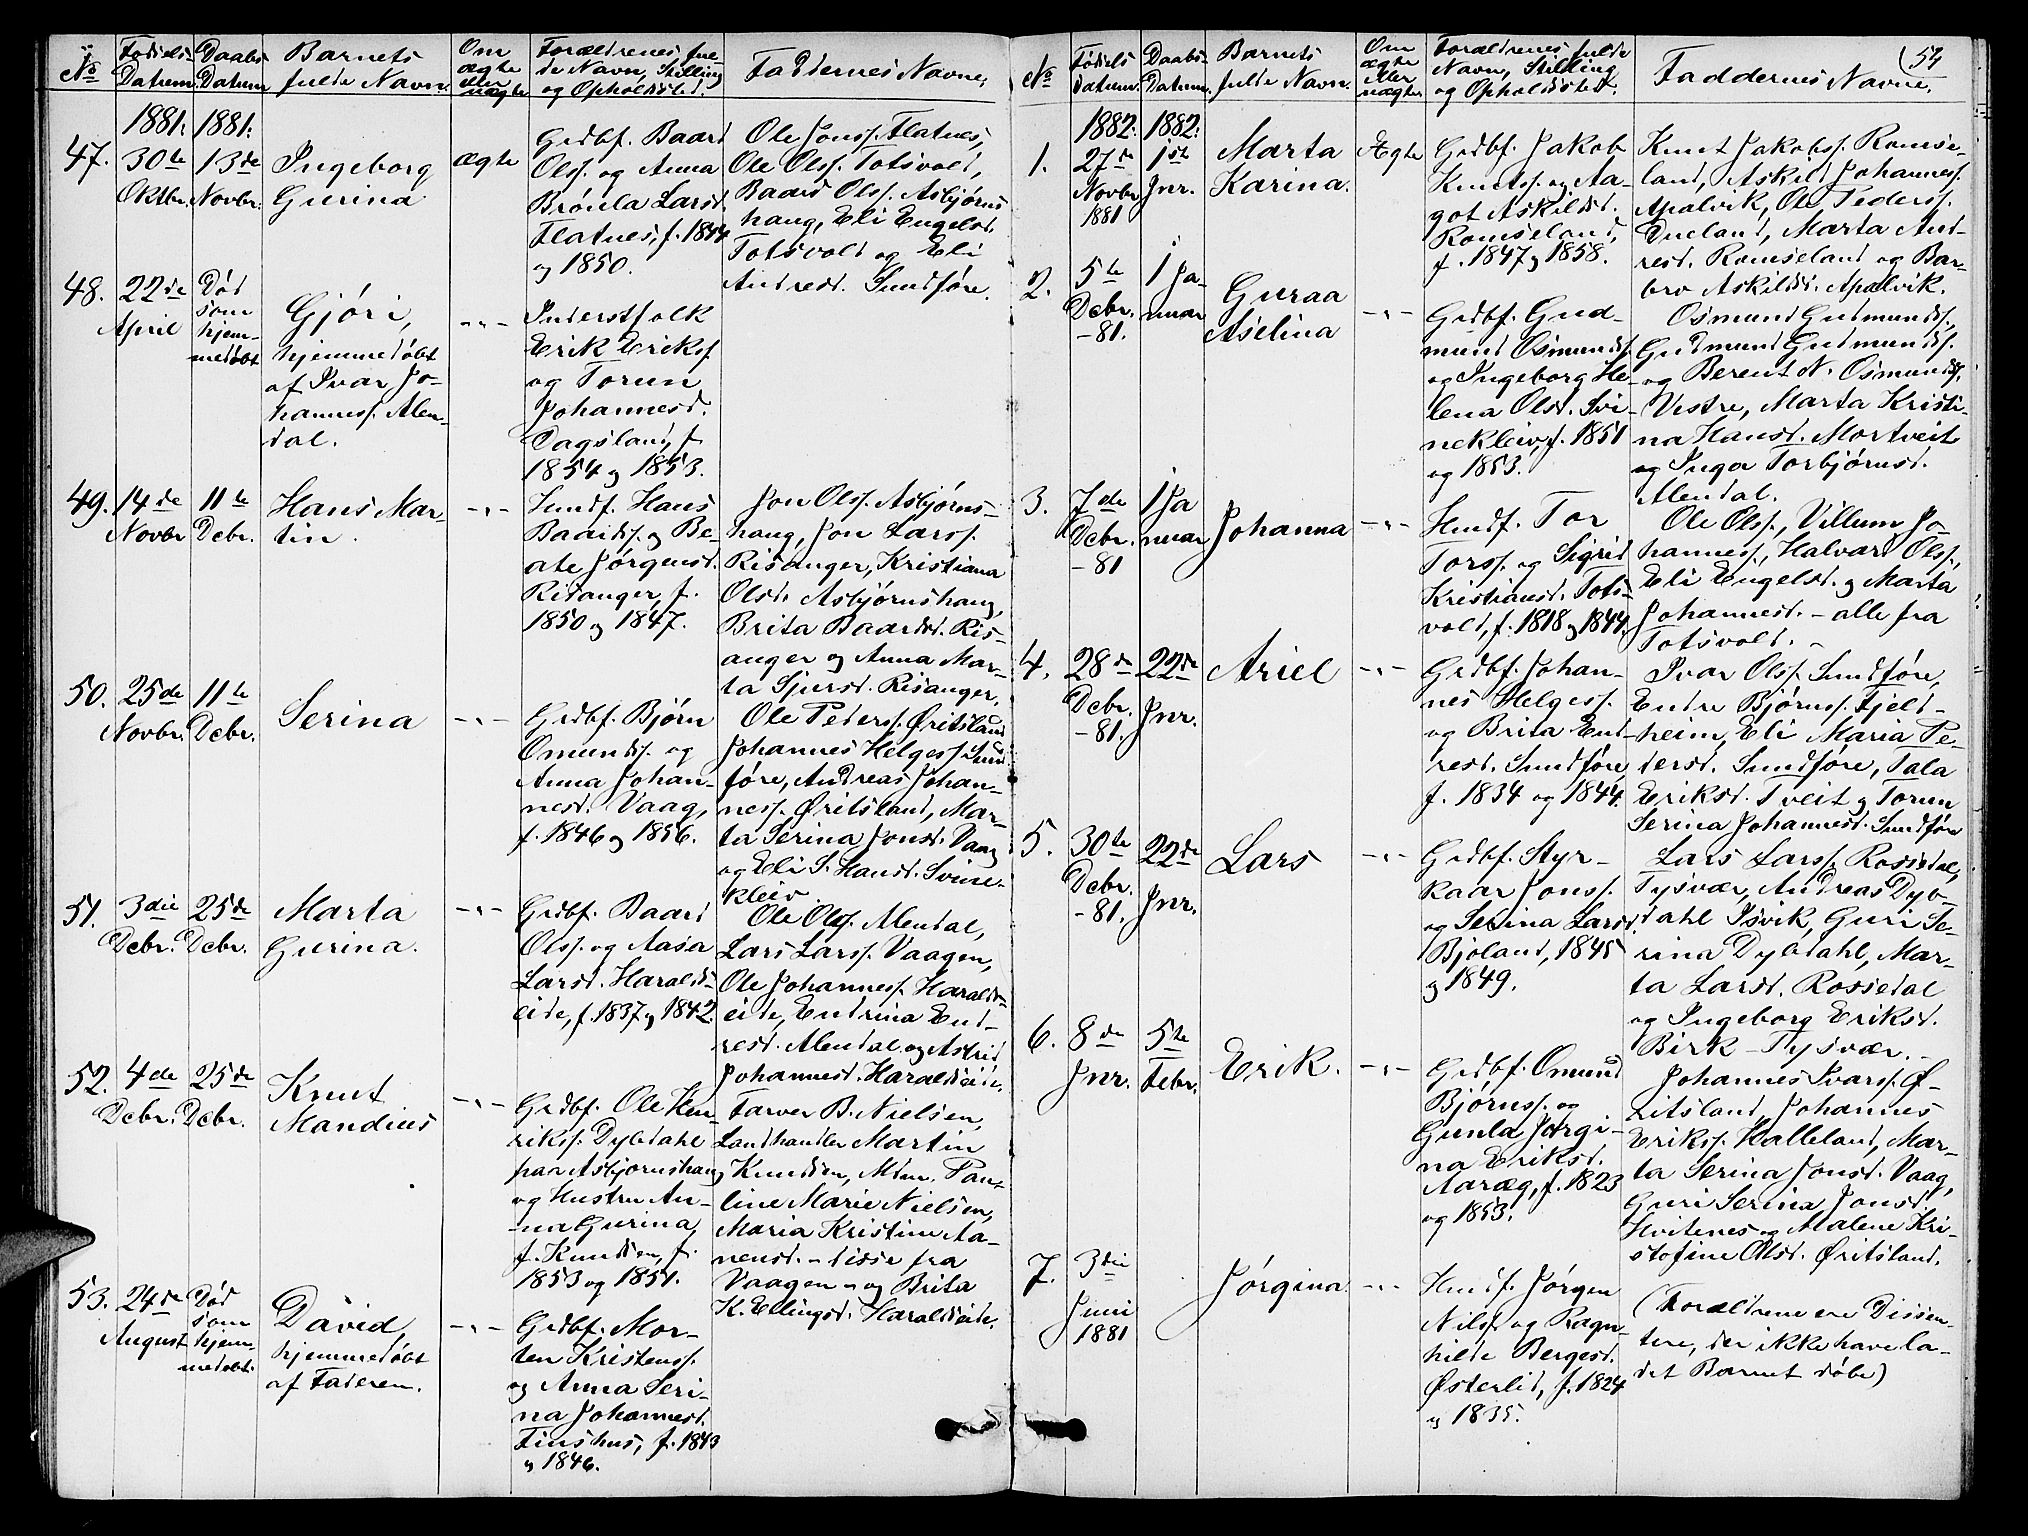 No
Fødsels
Datum.
Daabs
Datum
Barnets
fulde Navn
Om
ægte
eller
uægte
Forældrenes ful-
de Navn, Stilling
og Opholdsted.
Faddernes Navne.
1881:
1881:
47.
30te
Oktbr.
13de
Novbr.
Ingeborg
Gurina
ægte
Grdbf. Baard
Olss. og Anna
Brønla Larsd.
Flatnes, f. 1854
og 1850.
Ole Jonss. Flatnes,
Ole Olss. Totsvold,
Baard Olss. Asbjørns
haug, Eli Engelsd.
Totsvold og Eli
Andresd. Sundføre.
48.
22de
April
Død
som
hjem-
medøbt
Gjøri,
hjemmedøbt
af Ivar Jo-
hanness. Alen-
dal.
-"-
Inderstfolk
Erik Erikss
og Torun
Johannesd.
Dagsland, f.
1854 og 1853.
49.
14de
Novbr
11te
Dcbr.
Hans Mar-
tin.
-"-
Husmf. Hans
Baards. og Be-
ate Jørgensd.
Risanger, f.
1850 og 1847.
Jon Olss. Asbjørns-
haug, Jon Larss.
Risanger, Kristiana
Olsd. Asbjørnshaug,
Brita Baardsd. Ris-
anger og Anna Mar-
ta Sjursd. Risanger.
50.
25de
Novbr.
11te
Dcbr.
Serina
-"-
Grdbf. Bjørn
Omunds. og
Anna Johan-
nesd. Vaag,
f. 1846 og 1856.
Ole Peders. Øritsland
Johannes Helgess. Sund
føre, Andreas Johan-
ness. Øritsland, Mar-
ta Serina Jonsd. Vaag
og Eli S. Hansd. Svine-
kleiv.
51.
3die
Dcbr.
25de
Dcbr.
Marta
Gurina.
-"-
Grdbf. Baard
Olss. og Aasa
Larsd. Haralds-
eide, f. 1837 og 1842.
Ole Olss. Alendal,
Lars Larss. Vaagen,
Ole Johanness. Haralds-
eide, Endrina End-
resd. Alendal og Astrid
Johannesd. Haraldseide.
52.
4de
Dcbr.
25de
Dcbr.
Knut
Mandius
-"-
Grdbf. Ole Hen-
rikss. Dybdahl
paa Asbjørnshaug
og Hustru An-
na Gurina
f. Knudsen, f.
1853 og 1851.
Farver B. Nielsen,
Landhandler Martin
Knudsen, Mdm. Pau-
line Marie Nielsen,
Maria Kristine Aa-
nensd. - disse fra
Vaagen - og Brita
K. Ellingsd. Haraldseide.
53.
24de
August
Død
som
hjem-
medøbt.
David,
hjemmedøbt
af Faderen.
-"-
Grdbf. Mor-
ten Kristenss.
og Anna Seri-
na Johannesd.
Finshus, f. 1843
og 1846.
No
Fødsels
datum.
Daabs-
Datum.
Barnets
fulde Navn.
Om
ægte
eller
uægte
Forældrenes fulde
Navn, Stilling
og Opholdssted.
Faddernes Navne.
(54
1882:
1882:
1.
27de
Novbr
1881
1ste
Jnr.
Marta
Karina.
Ægte
Grdbf. Jakob
Knutss. og Aa-
got Askildsd.
Romseland,
f. 1847 og 1858.
Knut Jakobss. Romse-
land, Askild Johanness.
Apalvik, Ole Pederss.
Dueland, Marta And-
resd. Romseland og Bar-
bro Askildsd. Apalvik.
2.
5te
Dcbr.
-81.
1 Ja-
nuar
Guraa
Aselina
-"-
Grdbf. Gud-
mund Osmunds.
og Ingeborg He-
lena Olsd. Svi-
nekleiv, f. 1851
og 1853.
Osmund Gudmunds.
Gudmund Gudmunds.
og Berent N. Osmunds.
Vestre, Marta Kristi-
na Hansd. Mortveit
og Inga Torbjørnsd.
Alendal.
3.
7de
Dcbr.
-81
1 Ja
nuar
Johanna
-"-
Husmf. Tor
Torss. og Sigrid
Kristiansd. Tots-
vold, f. 1818 og 1844.
Ole Olss., Villum Jo-
hanness., Halvard Olss.,
Eli Engelsd. og Marta
Johannesd. - alle fra
Totsvold. -
4.
28de
Dcbr.
-81.
22de
Jnr.
Ariel
-"-
Grdbf. Johan-
nes Helgess.
og Brita End-
resd. Sundføre,
f. 1834 og 1844.
Ivar Olss. Sundføre,
Endre Bjørnss. Fjeld-
heim, Eli Maria Pe-
dersd. Sundføre, Tala
Eriksd. Tveit og Torun
Serina Johannesd. Sundføre
5.
30te
Dcbr.
-81.
22de
Jnr.
Lars
-"-
Grdbf. Styr-
kaar Jonss.
og Serina Larsd.
Bjoland, 1845
og 1849.
Lars Larss. Rossedal,
Tysvær, Andreas Dyb-
dahl Isvik, Guri Se-
rina Dybdahl, Mar-
ta Larsd. Rossedal
og Ingeborg Eriksd.
Birk - Tysvær. -
6.
8de
Jnr.
5te
Febr.
Erik.
-"-
Grdbf. Omund
Bjørnss. og
Gunla Jørgi-
na Eriksd.
Aaræg, f. 1823
og 1853.
Johannes Ivarss. Ø-
ritsland, Johannes
Erikss. Halleland, Mar-
ta Serina Jonsd. Vaag,
Guri Serina Jonsd.
Hvitenes og Malene Kri-
stofine Olsd. Øritsland.
7.
3die
Juni
1881
Jørgina
-"-
Husmf. Jørgen
Nilss. og Ragn-
hilde Bergesd.
Østerlid, f. 1824
og 1835.
(Forældrene ere Dissen-
tere, der ikke have la-
det Barnet døbe)